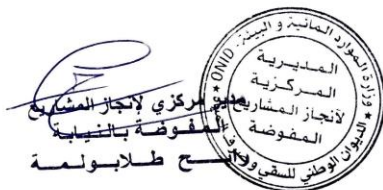 مدير مركزي لإنجاز المشاريع
المفوضة بالنيابة
طلابولمة
وزارة الموارد المائية و البيئة
ONID
الديوان الوطني للسقي وصرف المياه
المديرية
المركزية
لآنجاز المشاريع
المفوضة